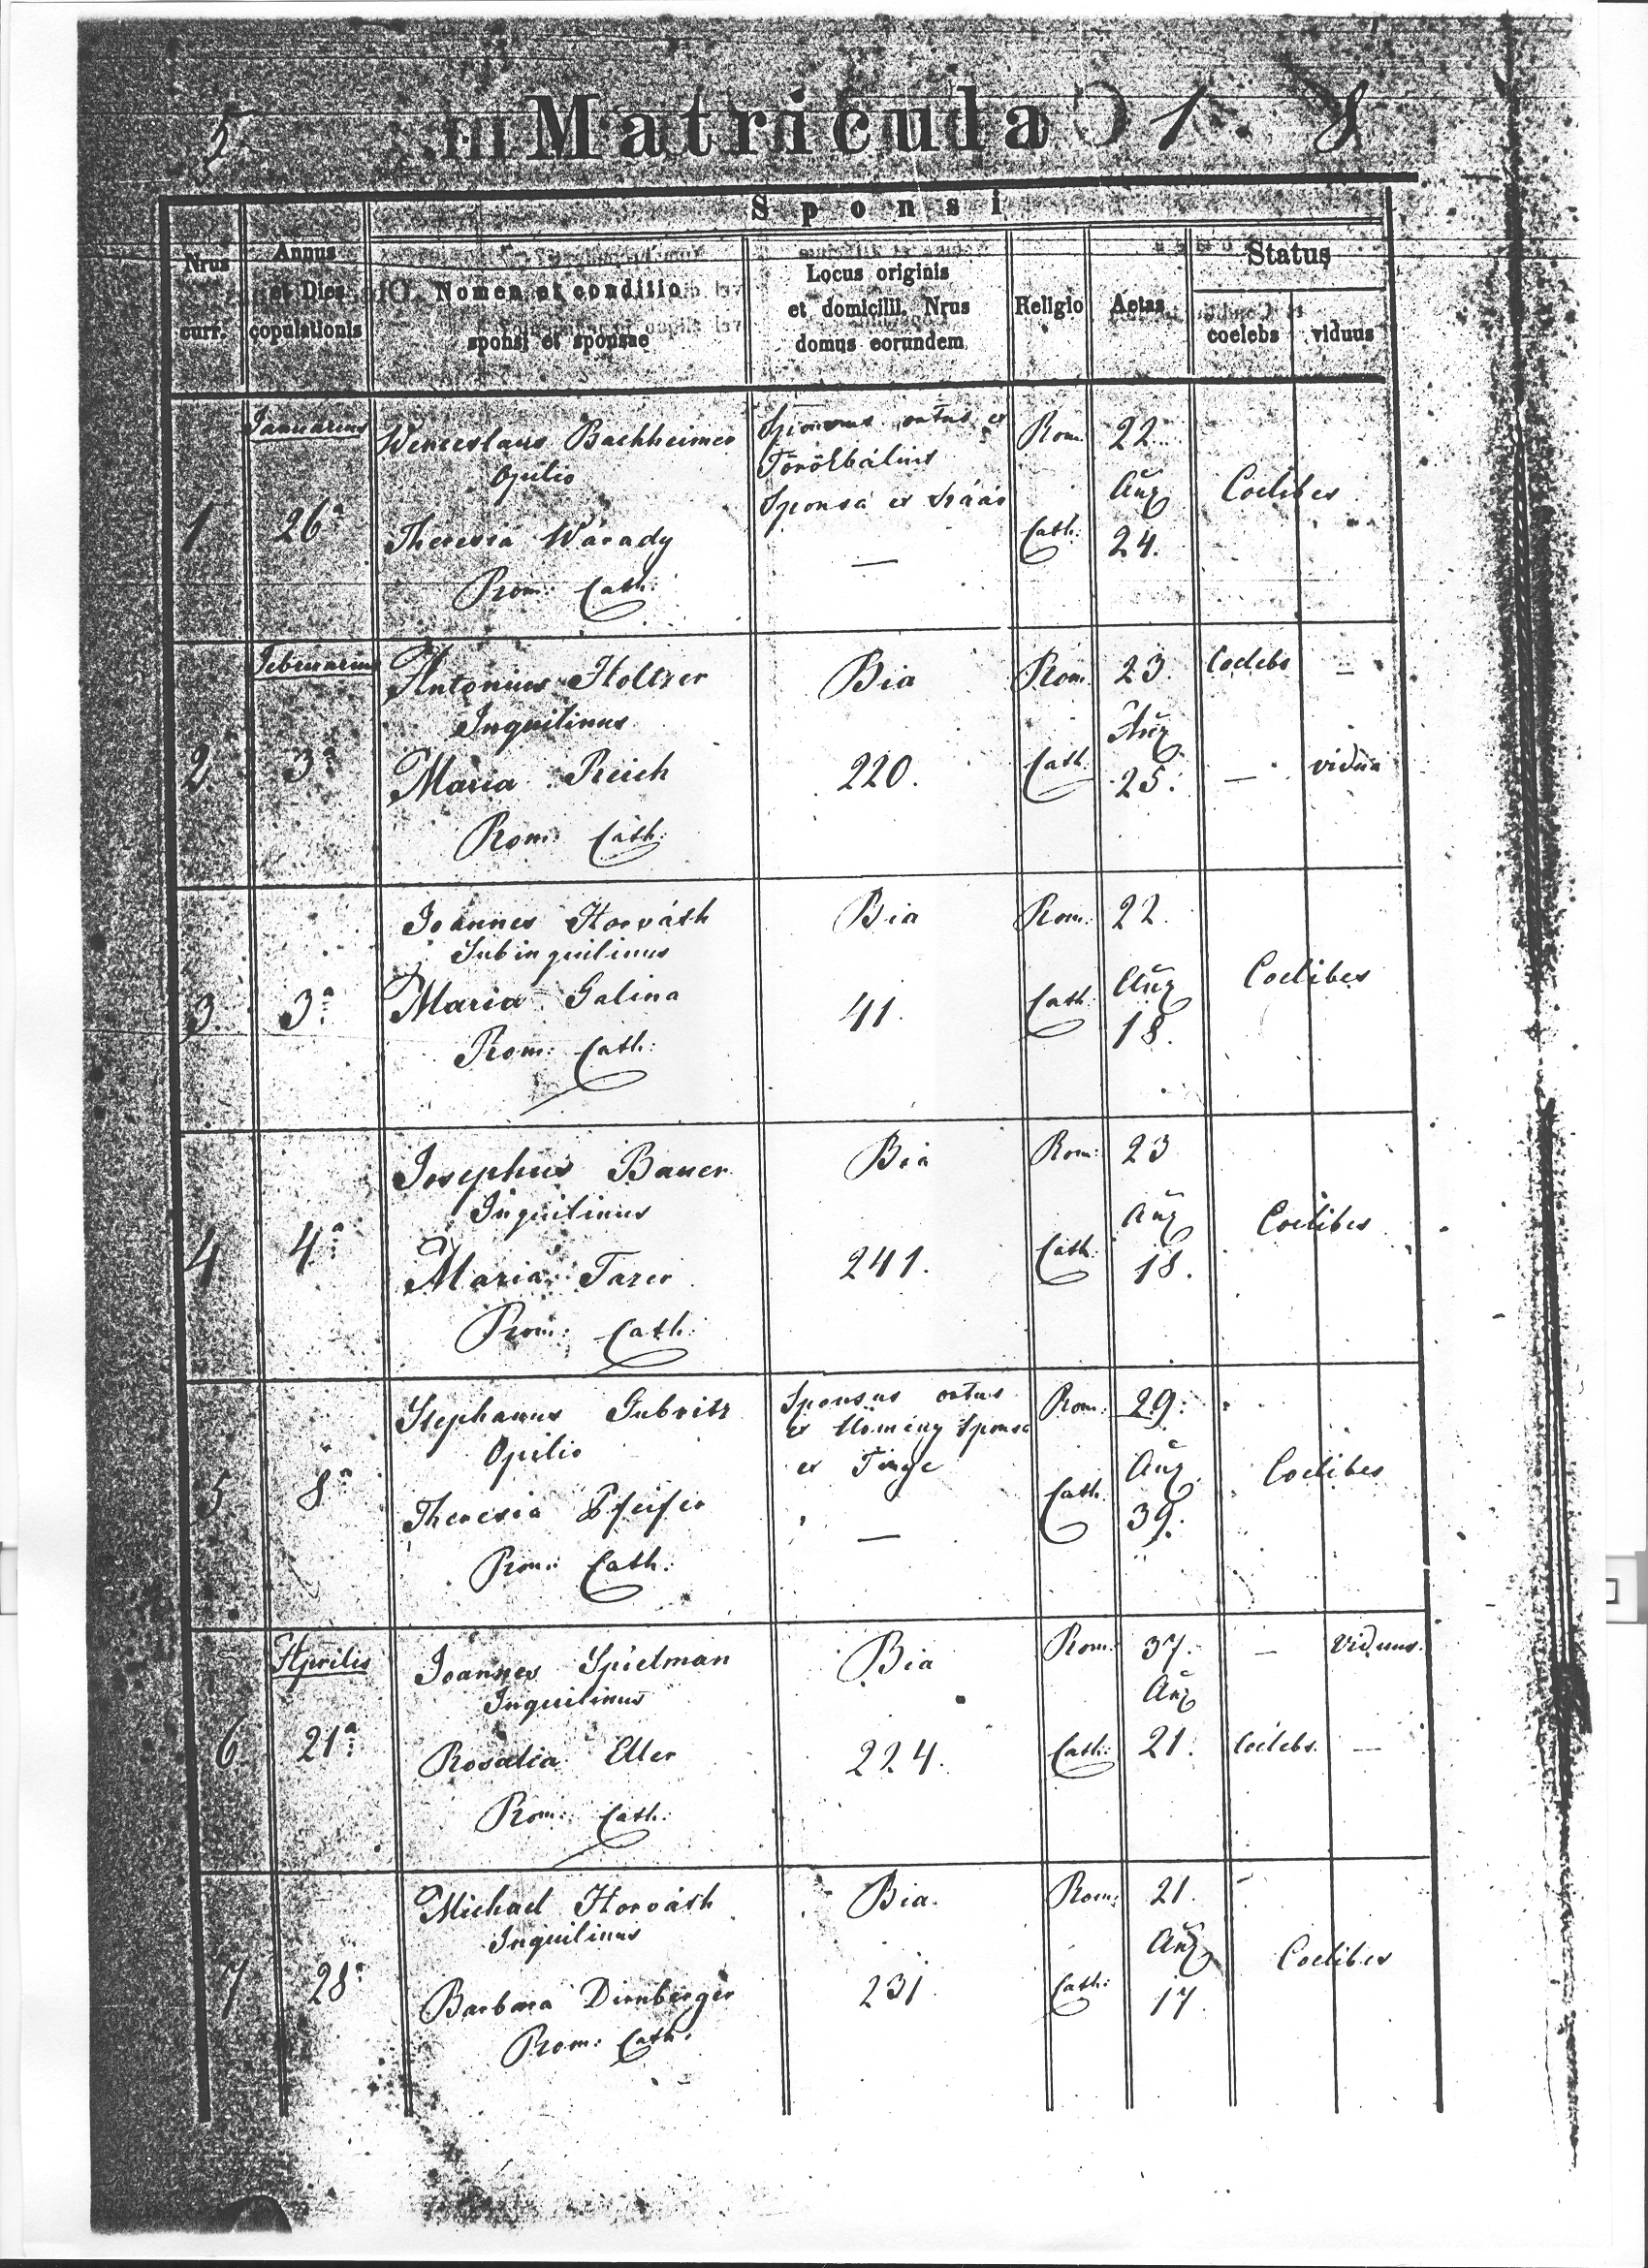 5
Matricula
1 8
Sponsi
Nrus
curr.
Annus
et Dies
copulationis
Nomen et conditio
sponsi et sponsae
Locus originis
et domicilii, Nrus
domus eorundem
Religio
Aetas
Status
coelebs
viduus
Januarius
1
26ª
Wenceslaus Bachheimer
Opilio
Theresia Wárady
Rom: Cath:
ortus ex
Törökbálint
Sponsa ex
—
Rom:
Cath:
22
24.
Coelibes
Februarius
2
3ª
Antonius Holtzer
Inquilinus
Maria Reich
Rom: Cath:
Bia
220.
Rom:
Cath:
23.
25.
Coelebs —
— vidua
3
3ª
Joannes Horváth
Subinquilinus
Maria Galina
Rom: Cath:
Bia
41.
Rom:
Cath:
22.
18.
Coelibes
4
4ª
Josephus Bauer
Inquilinus
Maria Tazer
Rom: Cath:
Bia
241.
Rom:
Cath:
23
18.
Coelibes
5
8ª
Stephanus
Opilio
Theresia Pfeifer
Rom: Cath:
Sponsus ortus
ex Sponsa
ex
—
Rom:
Cath:
29.
39.
Coelibes
Aprilis
6
21ª
Joannes Spielman
Inquilinus
Rosalia Eller
Rom: Cath:
Bia
224.
Rom:
Cath:
37.
21.
— viduus.
Coelebs. —
7
28
Michael Horváth
Inquilinus
Barbara Dirnberger
Rom: Cath:
Bia.
231
Rom:
Cath:
21.
17.
Coelibes